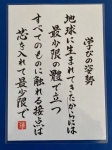 学びの姿勢
地球に生まれてきたからには
最少限の體で立つ
すべてのものに触れる接点は
芯を入れて最少限で